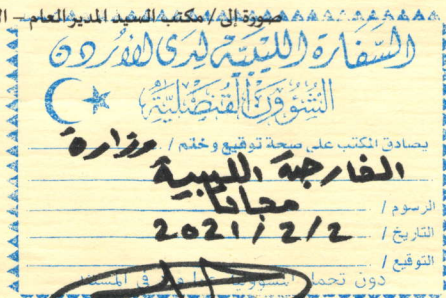 صورة إلى / مكتب السيد المدير العام - ال
السفارة الليبية لدى الأردن
الشؤون القنصلية
يصادق المكتب على صحة توقيع وختم / وزارة
الخارجية الليبية
الرسوم / مجانا
التاريخ / 2021/2/2
التوقيع /
دون تحمل المسؤولية عما ورد في المستند